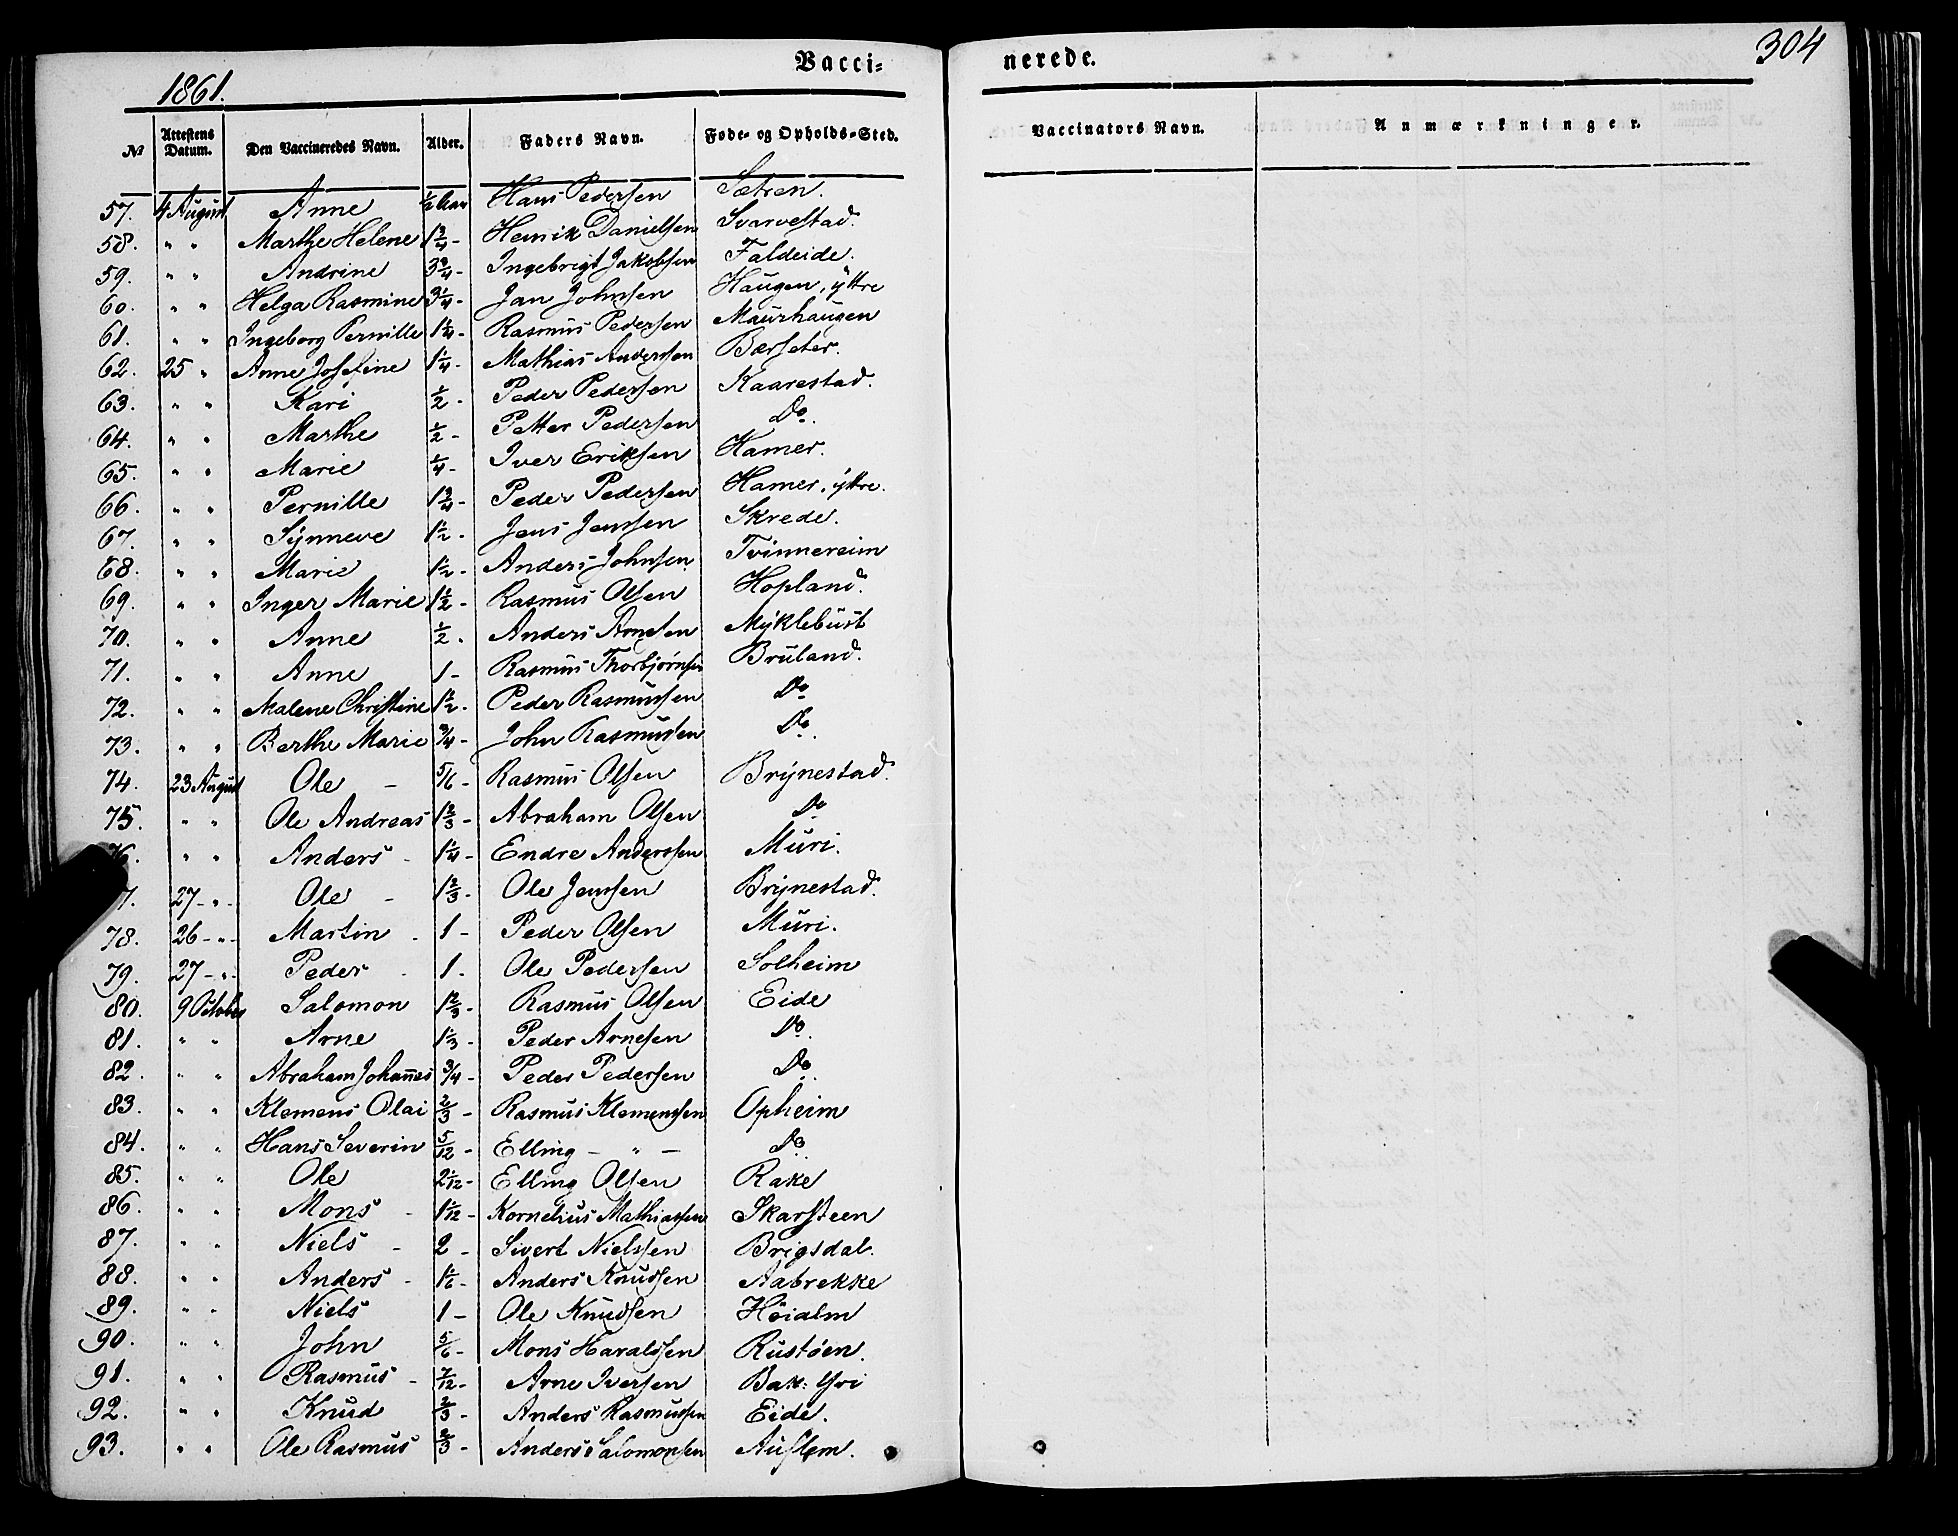 304
Vacci- nerede.
1861.
No Attestens Datum. Den Vaccineredes Navn. Alder. Faders Navn. Føde- og Opholds-Sted. Vaccinators Navn. Anmærkninger.
57. 4 August Anne ½ Aar Hans Pedersen Sætren.
58. " " Marthe Helene 1¾ - Henrik Danielsen Svarvestad.
59. " " Andrine 3¾ - Ingebrigt Jakobsen Faldeide.
60. " " Helga Rasmine 3¼ - Jan Johnsen Haugen, ÿttre
61. " " Ingeborg Pernille 1¼ - Rasmus Pedersen Maurhaugen
62. 25 " Anne Josefine 1¼ - Mathias Anderssen Bærseter.
63. " " Kari ½ - Peder Pedersen Kaarestad.
64. " " Marthe ½ - Petter Pedersen Do.
65. " " Marie ¼ - Iver Eriksen Hamer.
66. " " Pernille 1¾ - Peder Pedersen Hamer, ÿttre.
67. " " Sÿnneve 1½ - Jens Jenssen Skrede.
68. " " Marie 1½ - Anders Johnsen Tvinnereim
69. " " Inger Marie 1½ - Rasmus Olsen Hopland.
70. " " Anne ½ - Anders Arnesen Mÿklebust
71. " " Anne 1 - Rasmus Thorbjørnsen Bruland.
72. " " Malene Christine 1½ - Peder Rasmussen Do
73. " " Berthe Marie ¾ - John Rasmussen Do.
74. 23 August Ole - 5/6 - Rasmus Olsen Brÿnestad.
75. " " Ole Andreas 1⅔ - Abraham Olsen Do
76. " " Anders - 1¼ - Endre Anderssen Muri.
7. 27 - " - Ole - 1⅔ - Ole Jenssen Brÿnestad.
78. 26 - " - Martin - 1 - Peder Olsen Muri.
79. 27 - " - Peder - 1 - Ole Pedersen Solheim
80. 9 October Salomon 1⅔ - Rasmus Olsen Eide
81. " " Arne 1⅓ - Peder Arnesen Do.
82. " " Abraham Johannes ¾ - Peder Pedersen Do.
83. " " Klemens Olai ⅔ - Rasmus Klemenssen Opheim
84. " " Hans Severin 5/12 - Elling - " - Do.
85. " " Ole 2 1/12 - Elling Olsen Rake
86. " " Mons - 1 1/12 - Kornelius Mathiassen Skarsteen
87. " " Niels - 2 - Sivert Nielssen Brigsdal.
88. " " Anders - 1 1/6 - Anders Knudsen Aabrekke
89. " " Niels 1 - Ole Knudsen Höialm
90. " " John 5/6 - Mons Haraldsen Rustöen.
91. " " Rasmus - 7/12 - Arne Iversen Bak: Yri
92. " " Knud ⅔ - Anders Rasmussen Eide.
93. " " Ole Rasmus ⅔ - Anders Salomonsen Auslem.